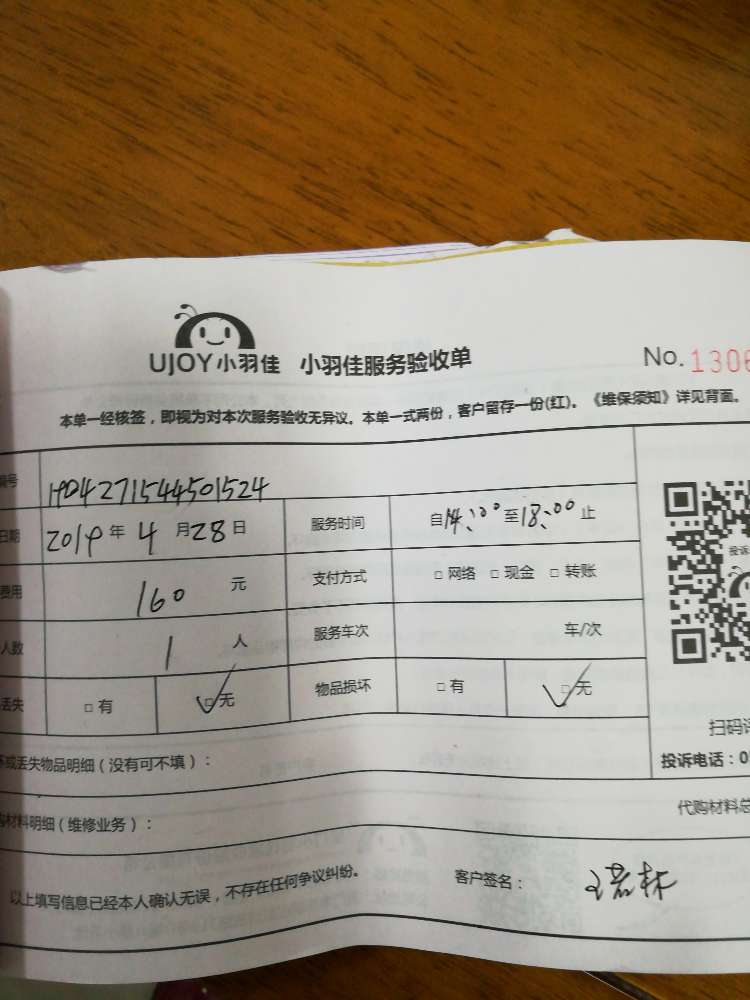 UJOY小羽佳 小羽佳服务验收单
No. 1306
本单一经核签，即视为对本次服务验收无异议。本单一式两份，客户留存一份(红)。《维保须知》详见背面。
编号 HD04271544501524
日期 2019年4月28日 服务时间 自14:00至18:00止
费用 160 元 支付方式 □ 网络 □ 现金 □ 转账
人数 1 人 服务车次 车/次
丢失 □ 有 □ 无 物品损坏 □ 有 □ 无
坏或丢失物品明细（没有可不填）：
扫码
投诉电话：0
购材料明细（维修业务）：
代购材料总
以上填写信息已经本人确认无误，不存在任何争议纠纷。 客户签名：